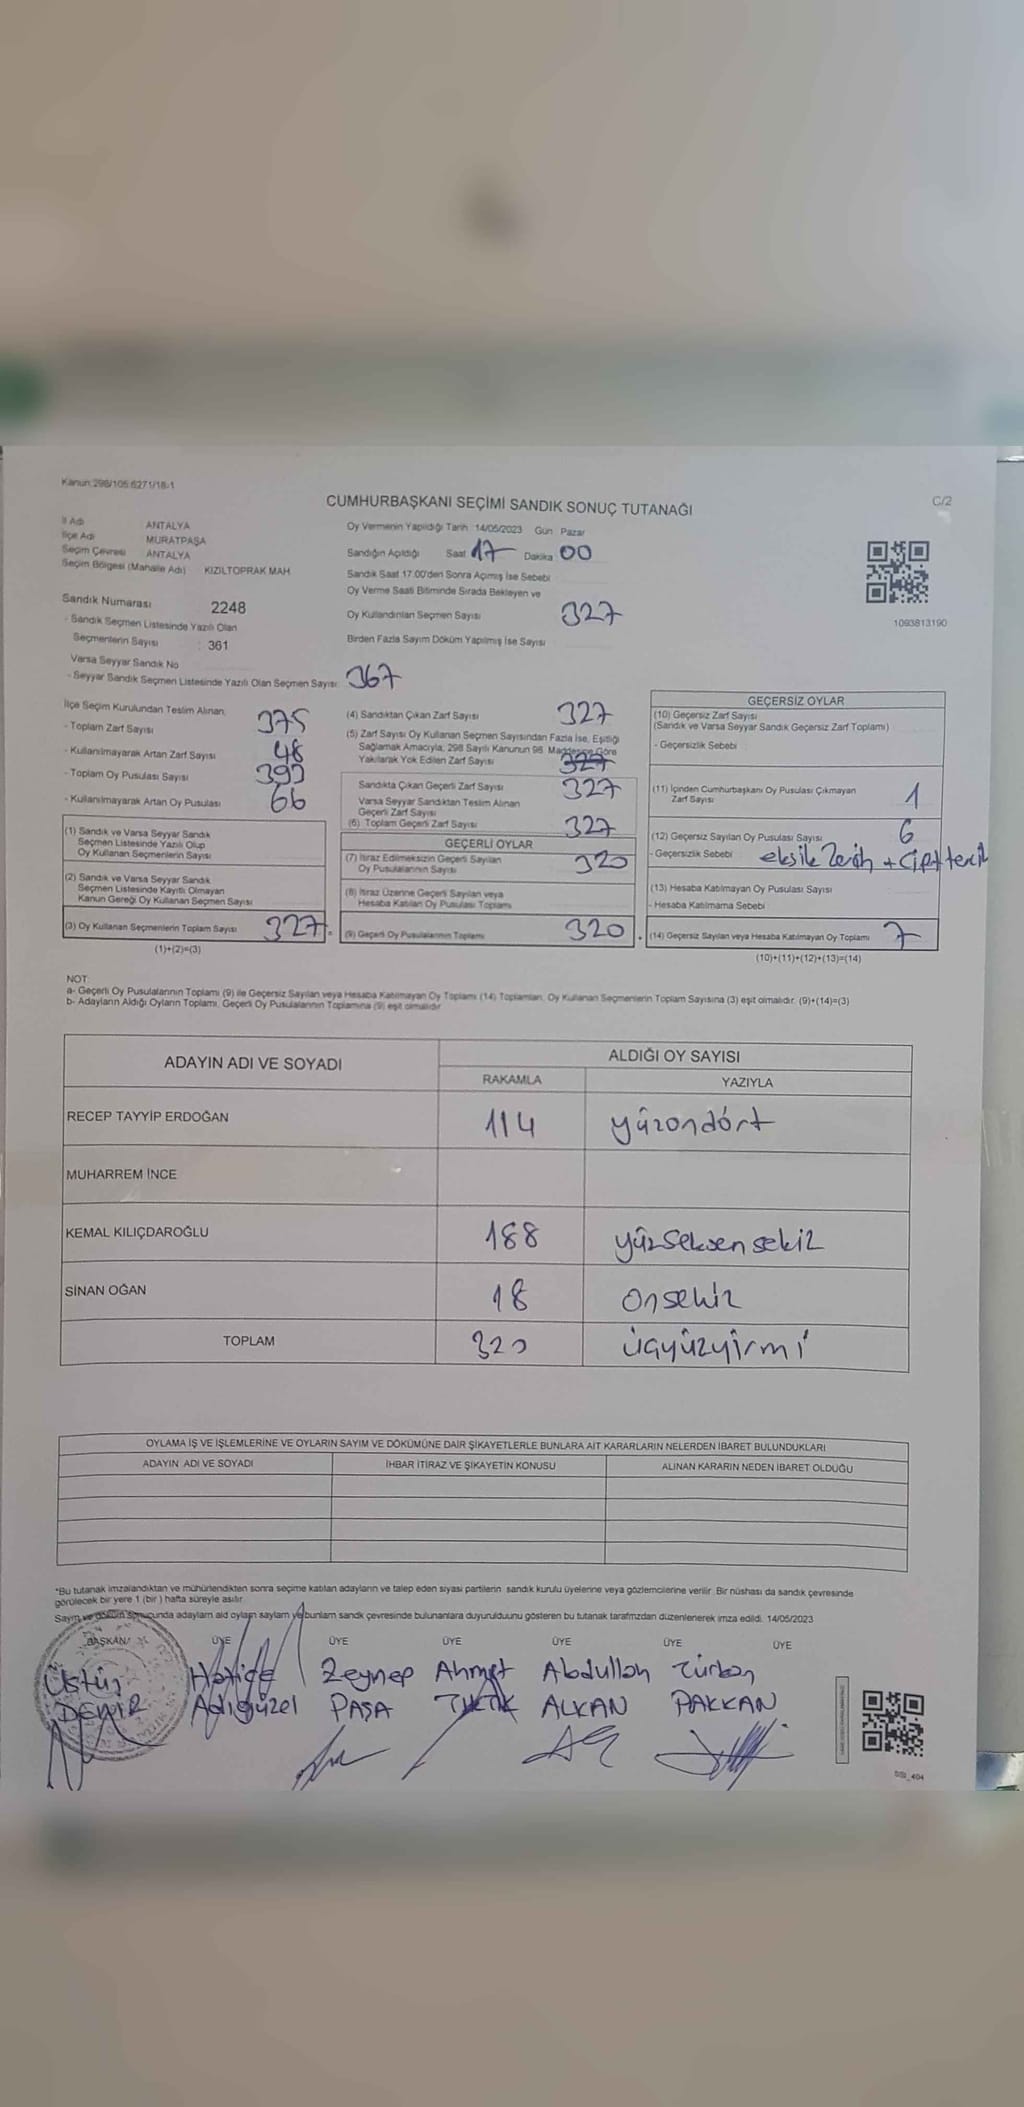 Kanun:298/105.6271/18-1
CUMHURBAŞKANI SEÇİMİ SANDIK SONUÇ TUTANAĞI
C/2
İl Adı ANTALYA
İlçe Adı MURATPAŞA
Seçim Çevresi ANTALYA
Seçim Bölgesi (Mahalle Adı) KIZILTOPRAK MAH.
Sandık Numarası 2248
- Sandık Seçmen Listesinde Yazılı Olan
Seçmenlerin Sayısı : 361
Varsa Seyyar Sandık No
- Seyyar Sandık Seçmen Listesinde Yazılı Olan Seçmen Sayısı: 367
Oy Vermenin Yapıldığı Tarih :14/05/2023 Gün Pazar
Sandığın Açıldığı Saat 17 Dakika 00
Sandık Saat 17.00'den Sonra Açımış İse Sebebi
Oy Verme Saati Bitiminde Sırada Bekleyen ve
Oy Kullandırılan Seçmen Sayısı 327
Birden Fazla Sayım Döküm Yapılmış İse Sayısı
1093813190
İlçe Seçim Kurulundan Teslim Alınan;
- Toplam Zarf Sayısı 375
- Kullanılmayarak Artan Zarf Sayısı 48
- Toplam Oy Pusulası Sayısı 393
- Kullanılmayarak Artan Oy Pusulası 66
(1) Sandık ve Varsa Seyyar Sandık
Seçmen Listesinde Yazılı Olup
Oy Kullanan Seçmenlerin Sayısı
(2) Sandık ve Varsa Seyyar Sandık
Seçmen Listesinde Kayıtlı Olmayan
Kanun Gereği Oy Kullanan Seçmen Sayısı
(3) Oy Kullanan Seçmenlerin Toplam Sayısı 327
(1)+(2)=(3)
(4) Sandıktan Çıkan Zarf Sayısı 327
(5) Zarf Sayısı Oy Kullanan Seçmen Sayısından Fazla İse, Eşitliği
Sağlamak Amacıyla, 298 Sayılı Kanunun 98. Maddesine Göre
Yakılarak Yok Edilen Zarf Sayısı 327
Sandıkta Çıkan Geçerli Zarf Sayısı 327
Varsa Seyyar Sandıktan Teslim Alınan
Geçerli Zarf Sayısı
(6) Toplam Geçerli Zarf Sayısı 327
GEÇERLİ OYLAR
(7) İtiraz Edilmeksizin Geçerli Sayılan
Oy Pusulalarının Sayısı 320
(8) İtiraz Üzerine Geçerli Sayılan veya
Hesaba Katılan Oy Pusulası Toplamı
(9) Geçerli Oy Pusulalarının Toplamı 320
GEÇERSİZ OYLAR
(10) Geçersiz Zarf Sayısı
(Sandık ve Varsa Seyyar Sandık Geçersiz Zarf Toplamı)
- Geçersizlik Sebebi
(11) İçinden Cumhurbaşkanı Oy Pusulası Çıkmayan
Zarf Sayısı 1
(12) Geçersiz Sayılan Oy Pusulası Sayısı 6
- Geçersizlik Sebebi eksik Zarf
(13) Hesaba Katılmayan Oy Pusulası Sayısı
- Hesaba Katılmama Sebebi
(14) Geçersiz Sayılan veya Hesaba Katılmayan Oy Toplamı 7
(10)+(11)+(12)+(13)=(14)
NOT:
a- Geçerli Oy Pusulalarının Toplamı (9) ile Geçersiz Sayılan veya Hesaba Katılmayan Oy Toplamı (14) Toplamları, Oy Kullanan Seçmenlerin Toplam Sayısına (3) eşit olmalıdır. (9)+(14)=(3)
b- Adayların Aldığı Oyların Toplamı, Geçerli Oy Pusulalarının Toplamına (9) eşit olmalıdır.
ADAYIN ADI VE SOYADI ALDIĞI OY SAYISI
RAKAMLA YAZIYLA
RECEP TAYYİP ERDOĞAN 114 yüzondört
MUHARREM İNCE
KEMAL KILIÇDAROĞLU 188 yüzseksen sekiz
SİNAN OĞAN 18 onsekiz
TOPLAM 320 üçyüzyirmi
OYLAMA İŞ VE İŞLEMLERİNE VE OYLARIN SAYIM VE DÖKÜMÜNE DAİR ŞİKAYETLERLE BUNLARA AİT KARARLARIN NELERDEN İBARET BULUNDUKLARI
ADAYIN ADI VE SOYADI İHBAR İTİRAZ VE ŞİKAYETİN KONUSU ALINAN KARARIN NEDEN İBARET OLDUĞU
*Bu tutanak imzalandıktan ve mühürlendikten sonra seçime katılan adayların ve talep eden siyasi partilerin sandık kurulu üyelerine veya gözlemcilerine verilir. Bir nüshası da sandık çevresinde
görülecek bir yere 1 (bir) hafta süreyle asılır.
Sayım ve döküm sonucunda adayların ald oyların sayların ve bunların sandk çevresinde bulunanlara duyurulduunu gösteren bu tutanak tarafmzdan düzenlenerek imza edildi. 14/05/2023
BAŞKAN ÜYE ÜYE ÜYE ÜYE ÜYE ÜYE
Hatice Zeynep Ahmet Abdullah Türkan
DEMİR Adıgüzel PAŞA ALKAN PAKKAN